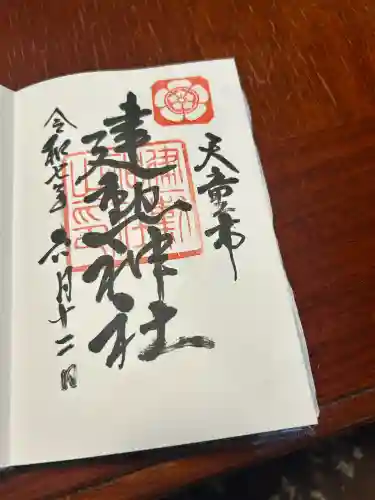 天童市
建勲神社
令和七年六月十二日